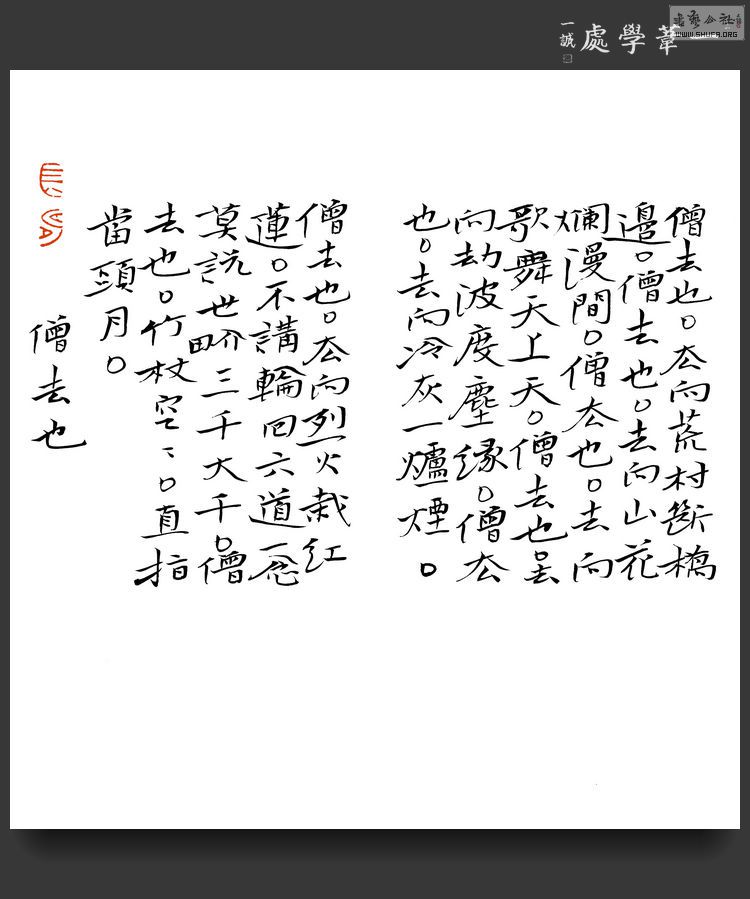 書藝公社
WWW.SHUFA.ORG
一葦學處
一誠
僧去也。去向荒村断橋
邊。僧去也。去向山花
爛漫間。僧去也。去向
歌舞天上天。僧去也。去
向劫波度塵緣。僧去
也。去向冷灰一爐煙。
僧去也。去向烈火栽紅
蓮。不講輪回六道一念
莫説世畍三千大千。僧
去也。竹杖空〻。直指
當頭月。
僧去也